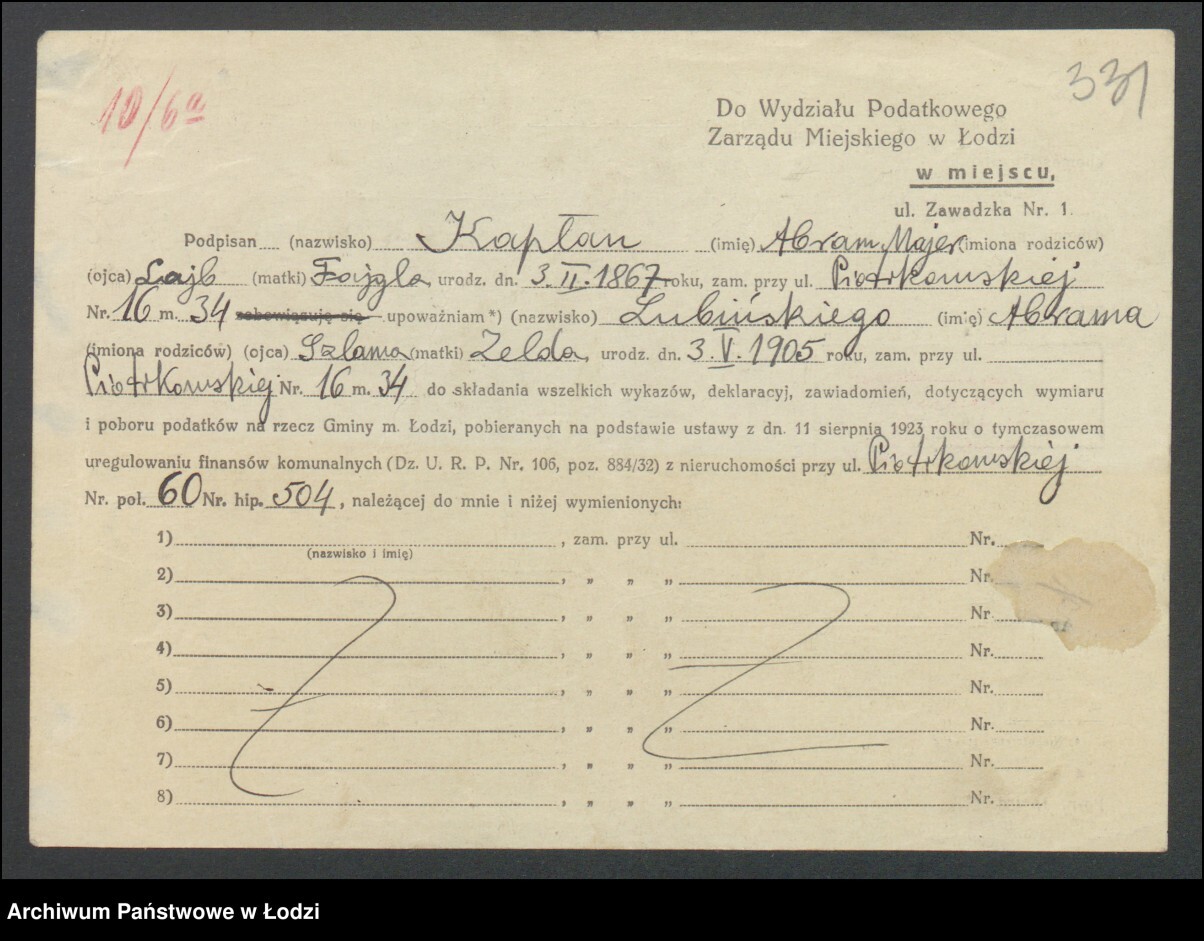 10/6a
331
Do Wydziału Podatkowego
Zarządu Miejskiego w Łodzi
w miejscu,
ul. Zawadzka Nr. 1
Podpisan (nazwisko) Kapłan (imię) Abram, Majer (imiona rodziców)
(ojca) Lajb (matki) Fajgla, urodz. dn. 3. II. 1867 roku, zam. przy ul. Piotrkowskiej
Nr. 16 m. 34 zobowiązuję się upoważniam *) (nazwisko) Lubińskiego (imię) Abrama
(imiona rodziców) (ojca) Szlama (matki) Zelda, urodz. dn. 3. V. 1905 roku, zam. przy ul.
Piotrkowskiej Nr. 16 m. 34 do składania wszelkich wykazów, deklaracyj, zawiadomień, dotyczących wymiaru
i poboru podatków na rzecz Gminy m. Łodzi, pobieranych na podstawie ustawy z dn. 11 sierpnia 1923 roku o tymczasowem
uregulowaniu finansów komunalnych (Dz. U. R. P. Nr. 106, poz. 884/32) z nieruchomości przy ul. Piotrkowskiej
Nr. poł. 60 Nr. hip. 504, należącej do mnie i niżej wymienionych:
1) , zam. przy ul. Nr.
(nazwisko i imię)
2) , „ „ „ Nr.
3) , „ „ „ Nr.
4) , „ „ „ Nr.
5) , „ „ „ Nr.
6) , „ „ „ Nr.
7) , „ „ „ Nr.
8) , „ „ „ Nr.
Archiwum Państwowe w Łodzi